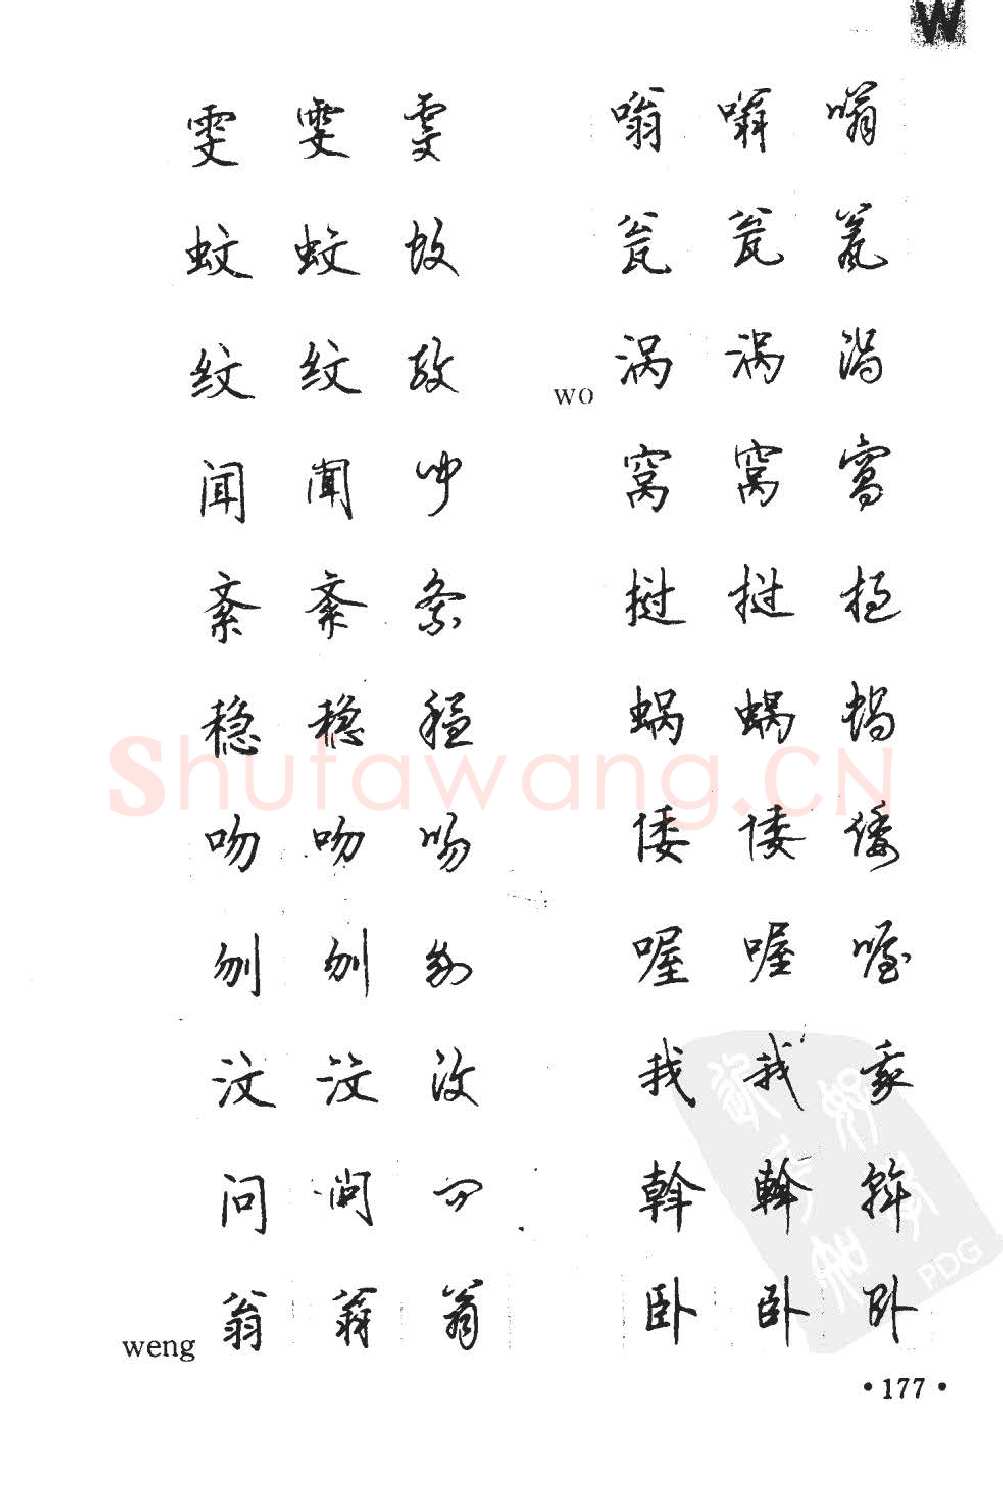 W
雯 雯 雯
蚊 蚊 蚊
纹 纹 纹
闻 闻 闻
紊 紊 紊
稳 稳 稳
吻 吻 吻
刎 刎 刎
汶 汶 汶
问 问 问
weng 翁 翁 翁
嗡 嗡 嗡
瓮 瓮 瓮
wo 涡 涡 涡
窝 窝 窝
挝 挝 挝
蜗 蜗 蜗
倭 倭 倭
喔 喔 喔
我 我 我
斡 斡 斡
卧 卧 卧
·177·
Shufawang.CN
PDG